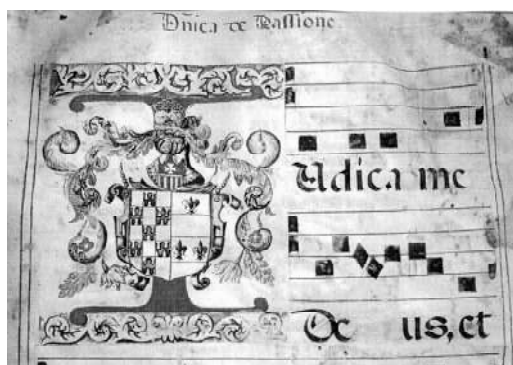 Dnica de Passione
IUdica me
De us, et